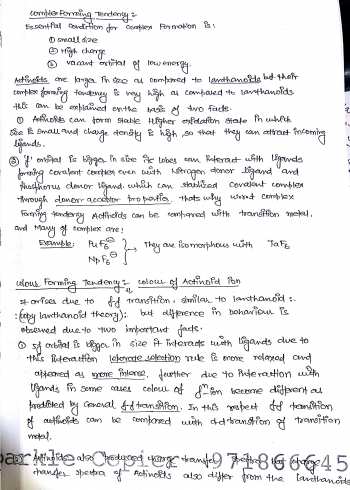 Complex Forming Tendency :
Essential condition for complex Formation is :
① small size
② High charge
③ vacant orbital of low energy.
Actinoids are larger in size as compared to lanthanoids but their
complex forming tendency is very high as compared to lanthanoids
this can be explained on the basis of two facts.
① Actinoids can form stable Higher oxidation state in which
size is small and charge density is high so that they can attract incoming
ligands.
② 'f' orbital is bigger in size its lobes can interact with ligands
forming covalent complex even with Nitrogen donor ligand and
Phosphorus donor ligand which can stabilized covalent complex
through donor acceptor properties thats why complex
Forming tendency Actinoids can be compared with transition metal.
and Many of complex are :
Example: PuF6⊖ } → They are isomorphous with TaF6
NpF6⊖
Colour Forming Tendency :- colour of Actinoid ion
it arises due to f-f transition. similar to lanthanoid :
:(copy lanthanoid theory): but difference in behaviour is
observed due to two important facts.
① 5f orbital is bigger in size it interacts with ligands due to
this interaction laporte selection rule is more relaxed and
appeared as more intense, further due to interaction with
ligands in some cases colour of fⁿ ion become different as
predicted by General f-f transition. In this respect f-f transition
of actinoids can be compared with d-d transition of transition
metal.
② Actinoids also produced charge transfer spectra but charge
transfer spectra of Actinoids also differ from the lanthanoids